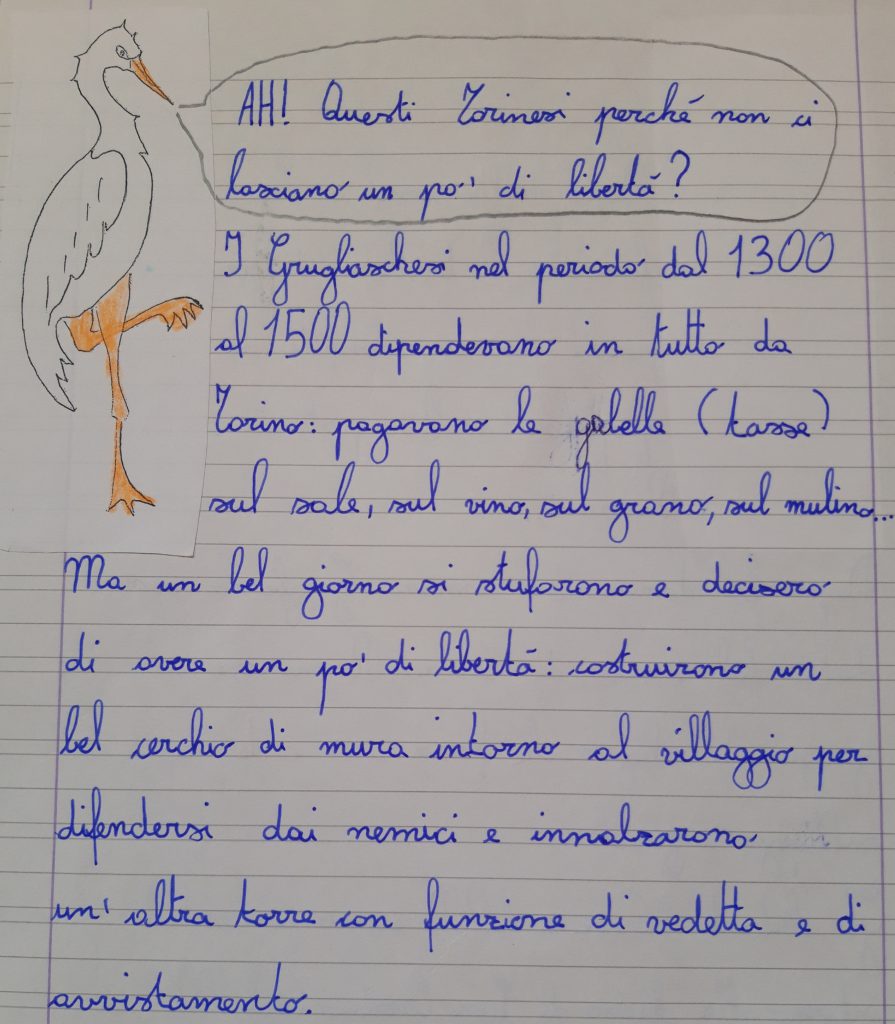 AH! Questi Torinesi perché non ci
lasciano un po' di libertá?
I Grugliaschesi nel periodo dal 1300
al 1500 dipendevano in tutto da
Torino: pagavano le gabelle (tasse)
sul sale, sul vino, sul grano, sul mulino...
Ma un bel giorno si stufarono e decisero
di avere un po' di libertá: costruirono un
bel cerchio di mura intorno al villaggio per
difendersi dai nemici e innalzarono
un' altra torre con funzione di vedetta e di
avvistamento.